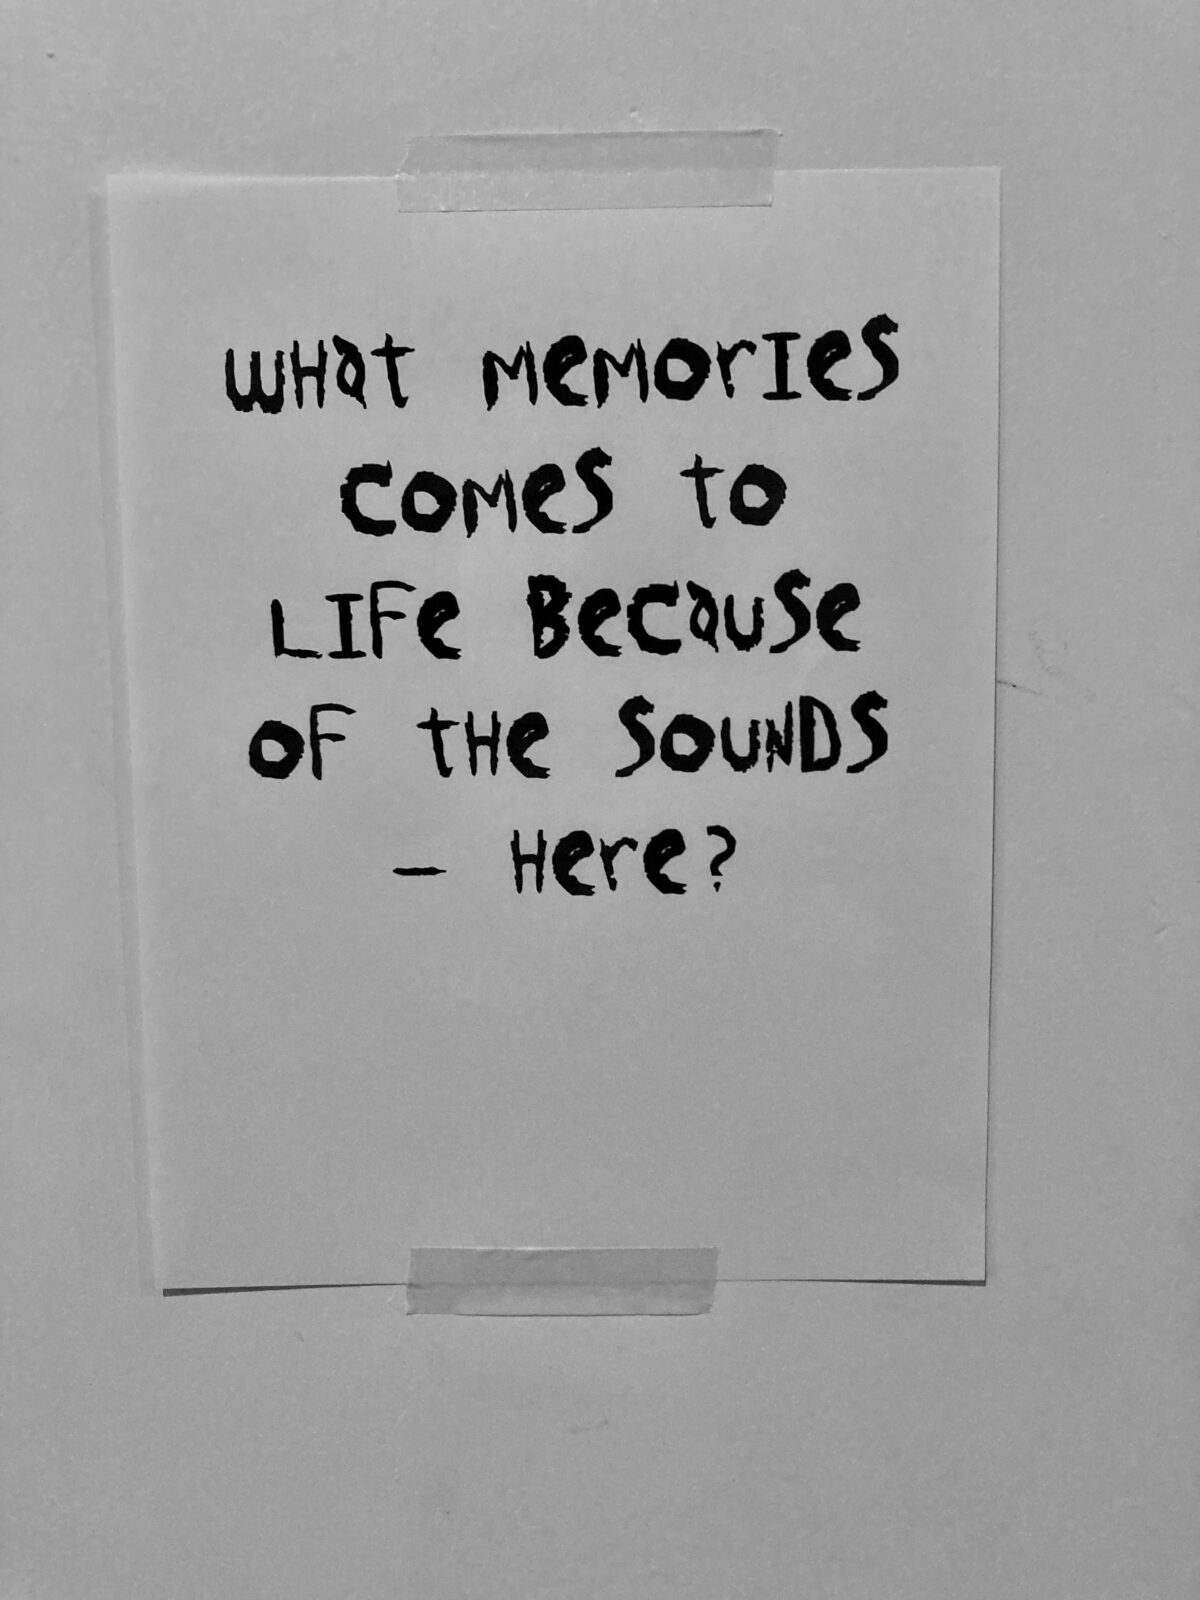 WHat MEMOrIES
COMES tO
LIFE BECause
OF tHE SOUNDS
– HErE?